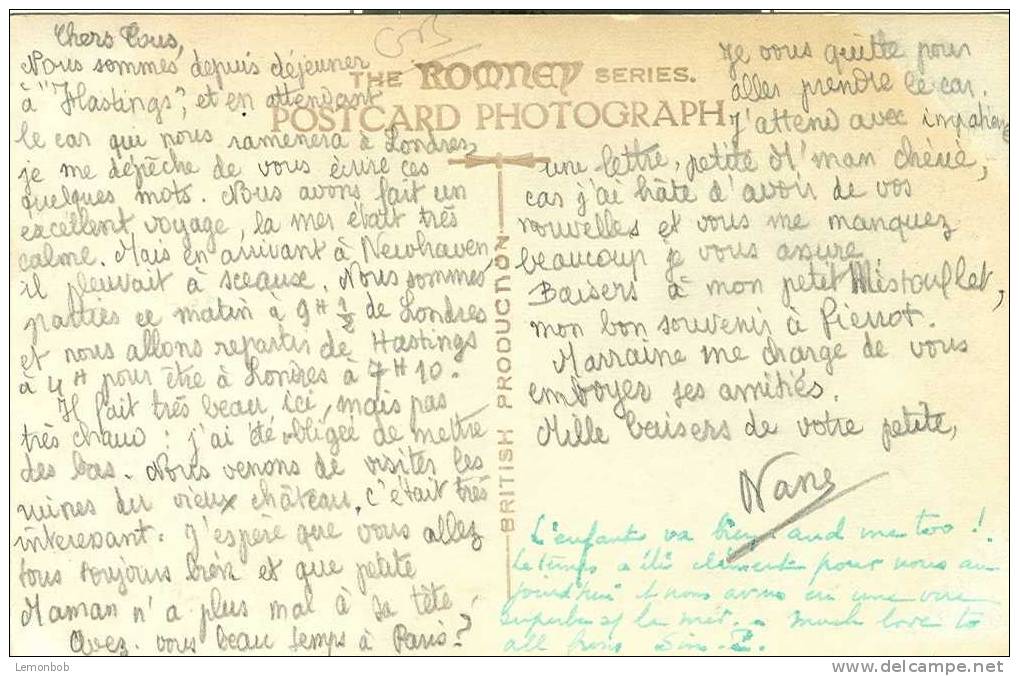 Chers Tous,
Nous sommes depuis déjeuner
à "Hastings", et en attendant
le car qui nous ramenera à Londres,
je me dépêche de vous écrire ces
quelques mots. Nous avons fait un
excellent voyage, la mer était très
calme. Mais en arrivant à Newhaven,
il pleuvait à sceaux. Nous sommes
parties ce matin à 9H 1/2 de Londres
et nous allons repartir de Hastings
à 4H pour être à Londres à 7H10.
Il fait très beau ici, mais pas
très chaud : j'ai été obligée de mettre
des bas. Nous venons de visiter les
ruines du vieux château, c'était très
intéressant. J'espère que vous allez
tous toujours bien et que petite
Maman n'a plus mal à la tête.
Avez-vous beau temps à Paris?
THE ROMNEY SERIES.
POSTCARD PHOTOGRAPH
BRITISH PRODUCTION
Je vous quitte pour
aller prendre le car.
J'attend avec impatience
une lettre, petite M'man chérie,
car j'ai hâte d'avoir de vos
nouvelles et vous me manquez
beaucoup je vous assure.
Baisers à mon petit
mon bon souvenir à Pierrot.
Marraine me charge de vous
emboyer ses amitiés.
Mille baisers de votre petite,
Nane
L'enfant va bien and me too !
Le temps a été clément pour nous au
jourd'hui et nous avons eu une vue
superbe la mer. much love to
all from
Lemonbob
delcampe.net